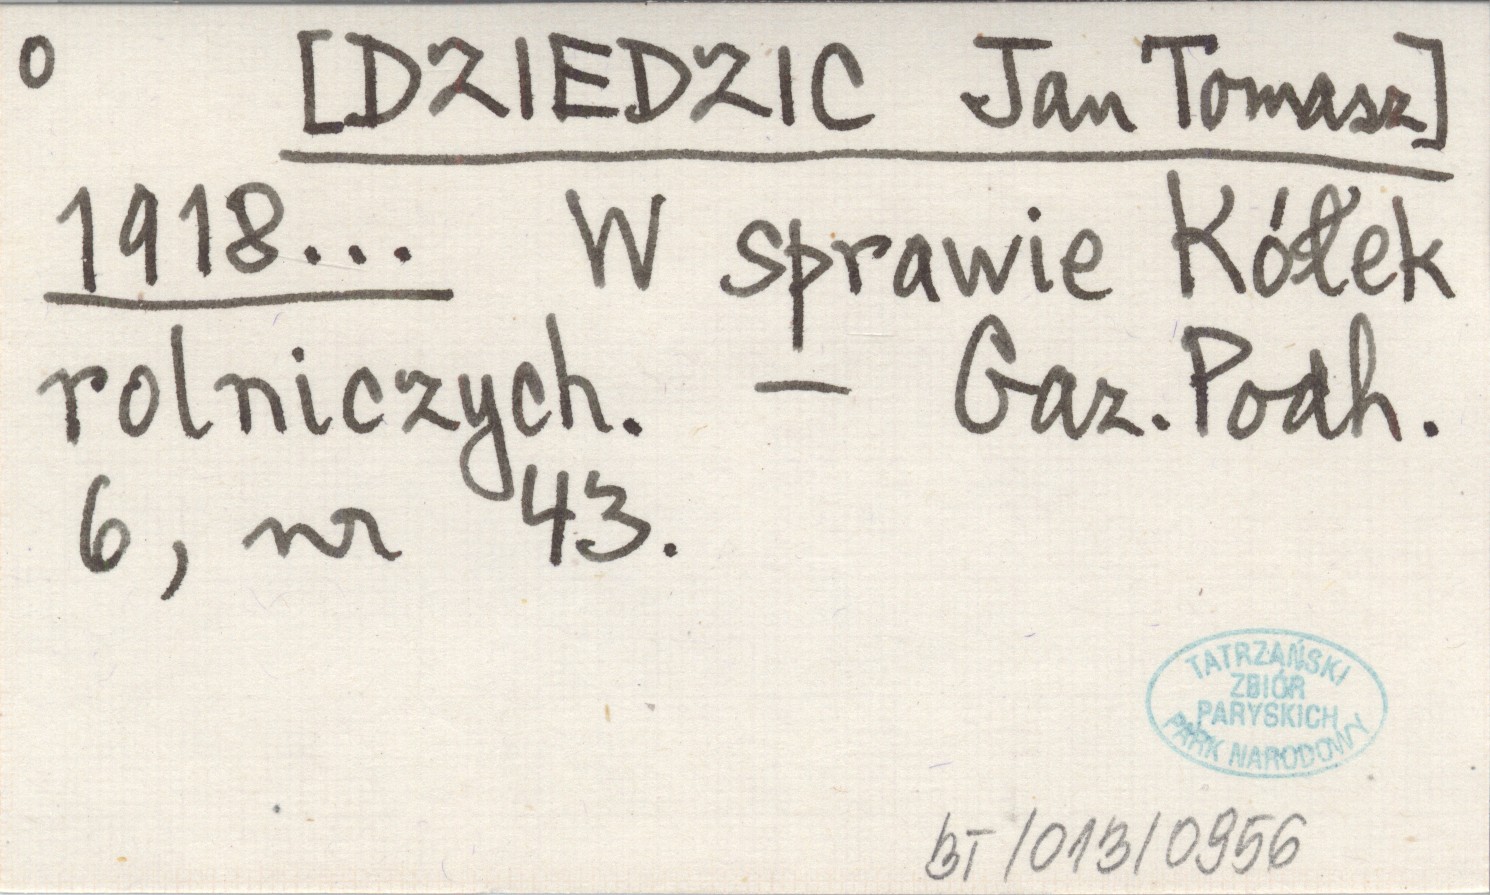 o [DZIEDZIC Jan Tomasz]
1918... W sprawie Kółek
rolniczych. — Gaz. Podh.
6, nr 43.
TATRZAŃSKI
ZBIÓR
PARYSKICH
PARK NARODOWY
BT/013/0956